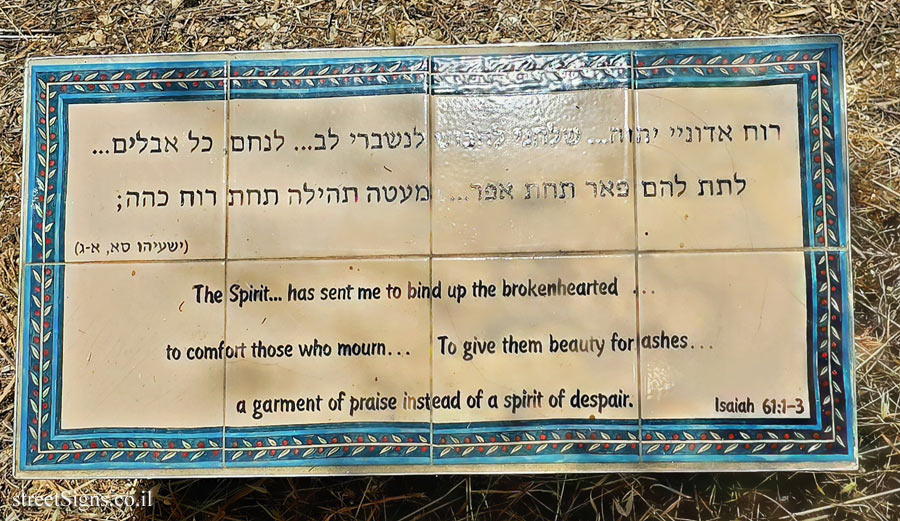 רוח אדוניי יהוה... שלחני לחבוש לנשברי לב... לנחם כל אבלים...
לתת להם פאר תחת אפר... מעטה תהילה תחת רוח כהה;
(ישעיהו סא, א-ג)
The Spirit... has sent me to bind up the brokenhearted ...
to comfort those who mourn... To give them beauty for ashes...
a garment of praise instead of a spirit of despair.
Isaiah 61:1-3
streetSigns.co.il